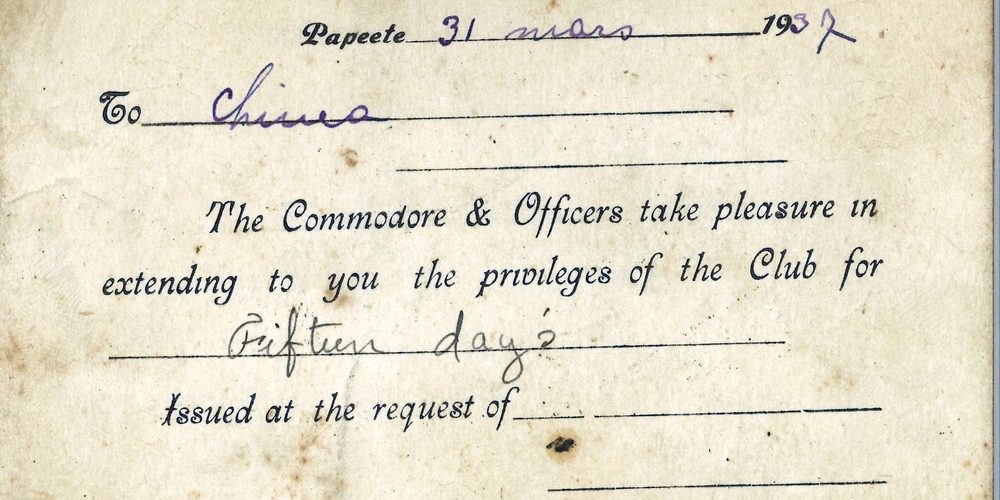 Papeete 31 mars 1937
To Chinea
The Commodore & Officers take pleasure in
extending to you the privileges of the Club for
Fifteen day's
Issued at the request of